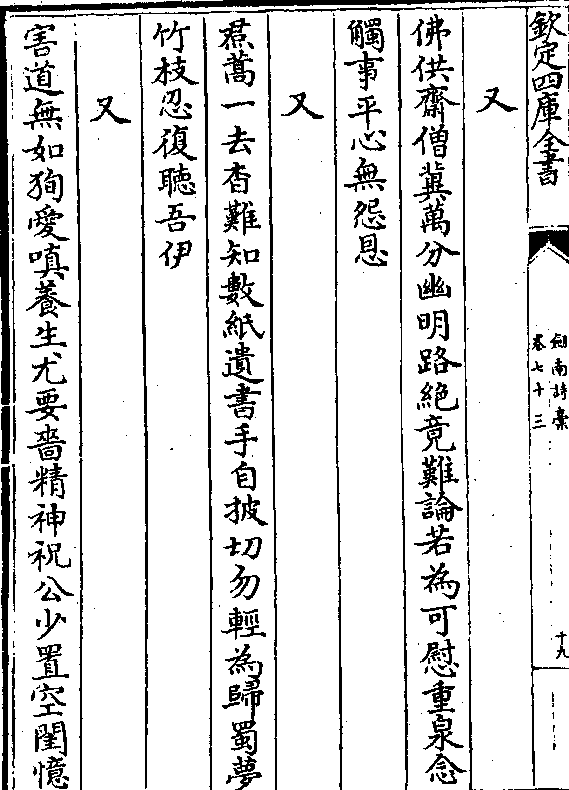 欽定四庫全書
劍南詩藁
卷七十三
十九
又
佛供齋僧冀萬分幽明路絶竟難論若為可慰重泉念
觸事平心無怨恩
又
焄蒿一去杳難知數紙遺書手自披切勿輕為歸蜀夢
竹枝忍復聽吾伊
又
害道無如狥愛嗔養生尤要嗇精神祝公少置空閨憶